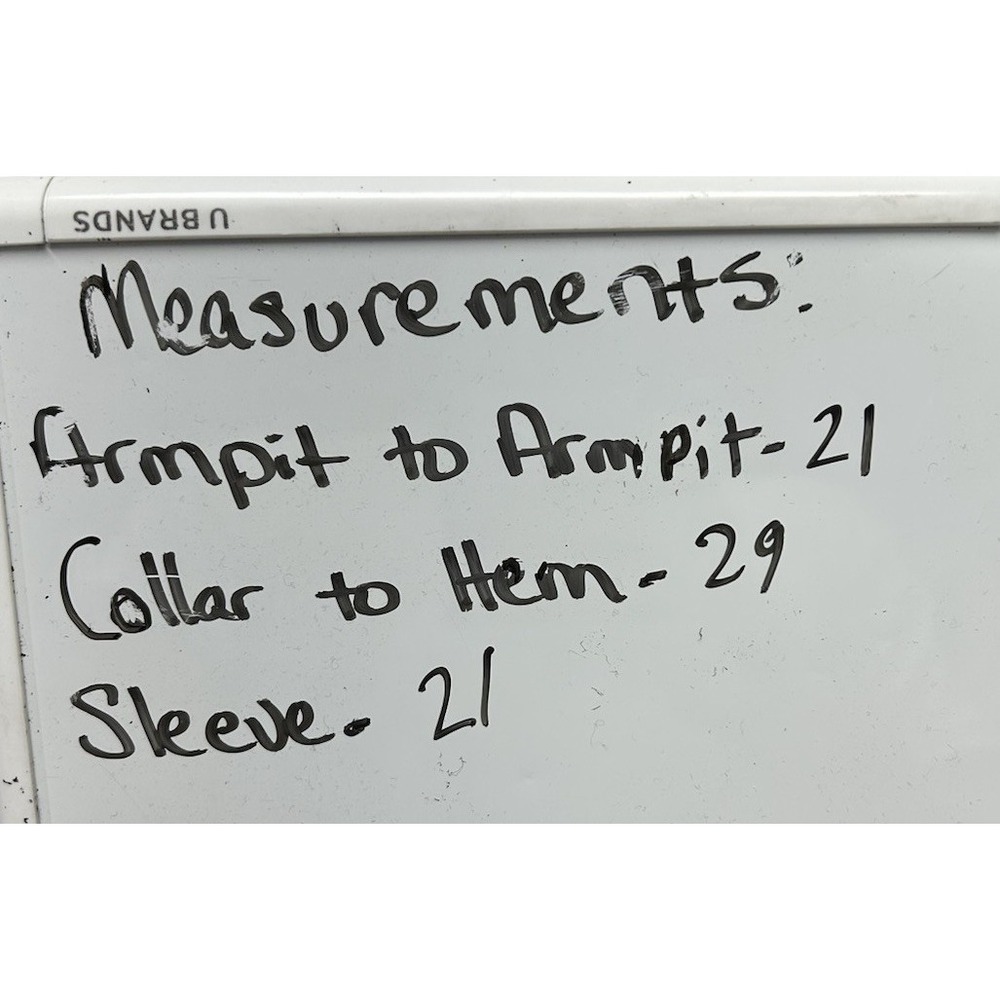 U BRANDS
Measurements:
Armpit to Armpit - 21
Collar to Hem - 29
Sleeve - 21